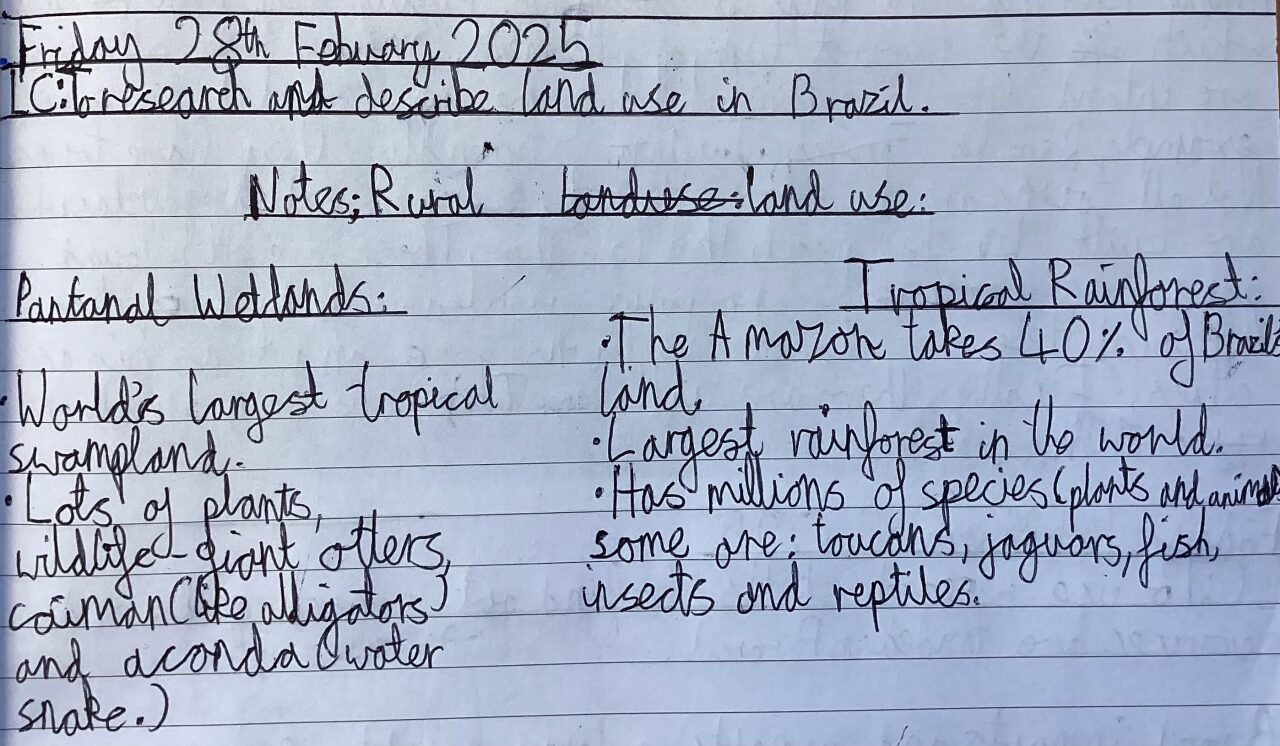 Friday 28th Febuary 2025
LC: to research and describe land use in Brazil.
Notes; Rural landuse: land use:
Pantanal Wetlands:
· World's largest tropical
swampland.
· Lots of plants,
wildlife - giant otters,
caiman (like alligators)
and aconda (water
snake.)
Tropical Rainforest:
· The Amazon takes 40% of Brazil's
land.
· Largest rainforest in the world.
· Has millions of species (plants and animal
some are: toucans, jaguars, fish,
insects and reptiles.